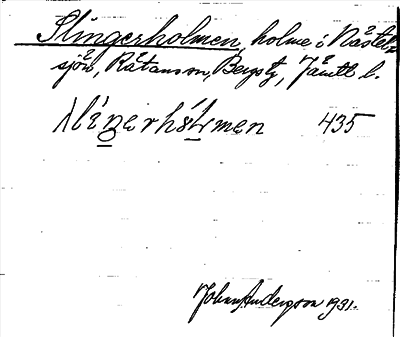 Slingerholmen, holme i Nästel-
sjön, Rätansm, Bergstg, Jämtl l.
slíŋerhólmen 435
Johan Andersson 1931.